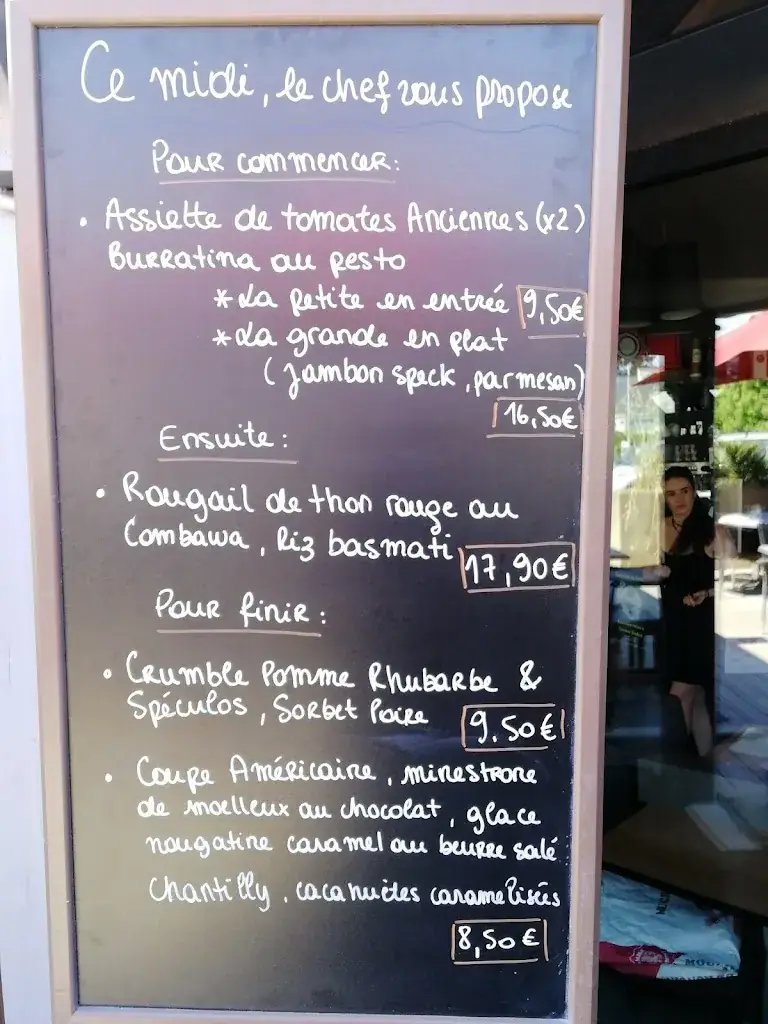 Ce midi, le chef vous propose
Pour commencer:
• Assiette de tomates Anciennes (x2)
Burratina au pesto
* La petite en entrée 9,50€
* La grande en plat
(Jambon speck, parmesan)
16,50€
Ensuite:
• Rougail de thon rouge au
Combawa, Riz basmati 17,90€
Pour finir:
• Crumble Pomme Rhubarbe &
Spéculos, Sorbet Poire 9.50€
• Coupe Américaine, minestrone
de moelleux au chocolat, glace
nougatine caramel au beurre salé
Chantilly, cacahuètes caramélisées
8,50€